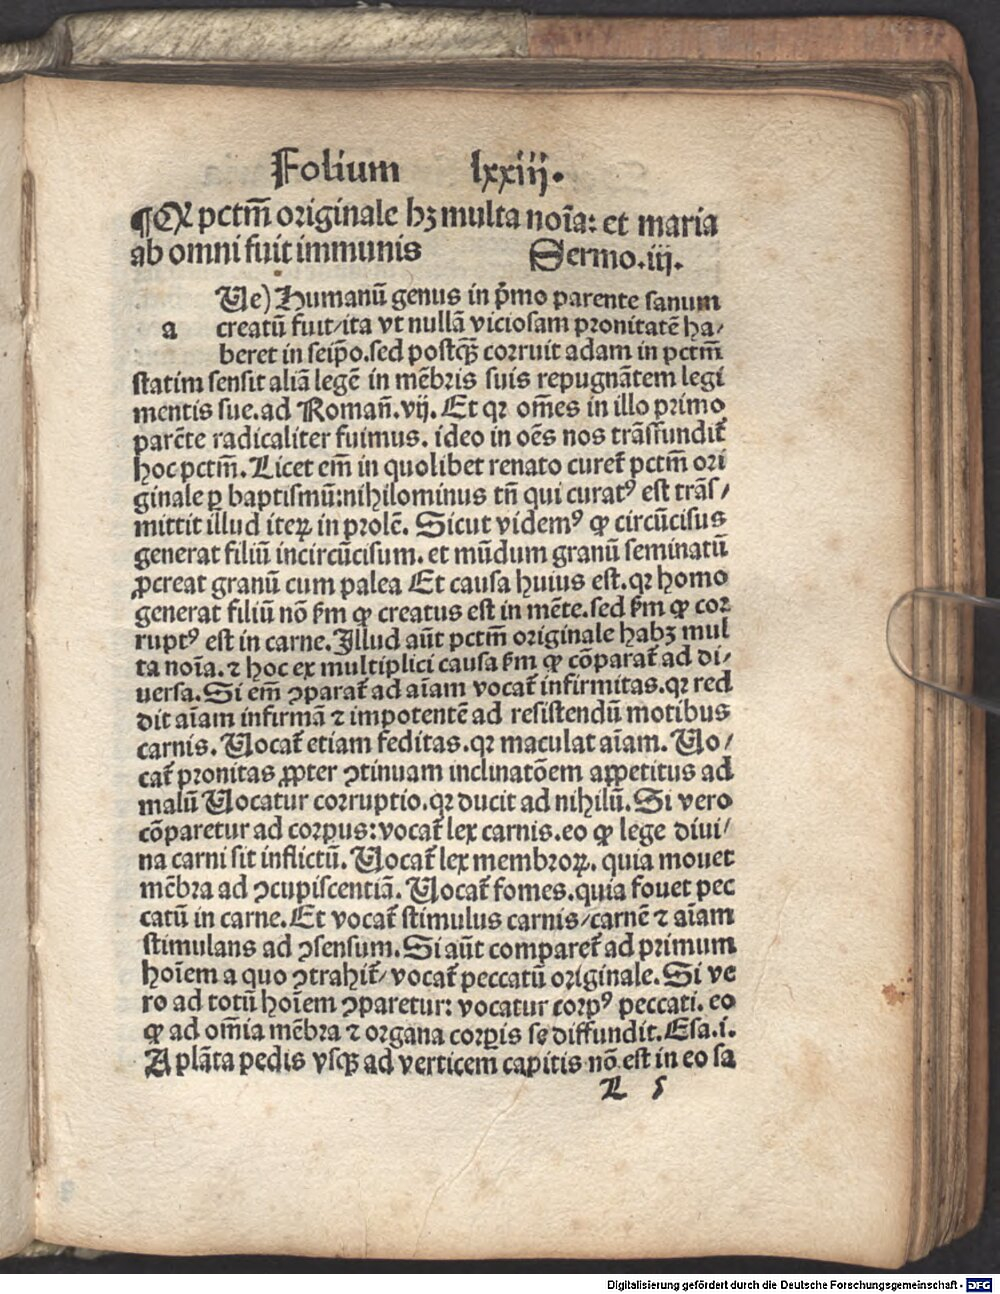 Folium lxxiij.
¶Qꝙ pctm̄ originale hꝫ multa noīa: et maria
ab omni fuit immunis Sermo.iij.
Ue) Humanū genus in p̄mo parente sanum
a creatū fuit/ita vt nullā viciosam pronitatē ha/
beret in seip̄o.sed postq̄ꝫ corruit adam in pctm̄
statim sensit aliā legē in mēbris suis repugnātem legi
mentis sue.ad Romañ.vij. Et qꝛ om̄es in illo primo
parēte radicaliter fuimus. ideo in oēs nos trāsfundit̄
hoc pctm̄. Licet em̄ in quolibet renato curet̄ pctm̄ ori
ginale ꝑ baptismū:nihilominus tn̄ qui curatꝰ est trāſ/
mittit illud iteꝝ in prolē. Sicut videmꝰ ꝙ circūcisus
generat filiū incircūcisum. et mūdum granū seminatū
ꝓcreat granū cum palea Et causa huius est.qꝛ homo
generat filiū nō ẜm ꝙ creatus est in mēte.sed ẜm ꝙ cor
ruptꝰ est in carne.Illud aūt pctm̄ originale habꝫ mul
ta noīa.⁊ hoc ex multiplici causa ẜm ꝙ cōparat̄ ad di/
uersa.Si em̄ ꝯparat̄ ad aīam vocat̄ infirmitas.qꝛ red
dit aīam infirmā ⁊ impotentē ad resistendū motibus
carnis. Uocat̄ etiam feditas.qꝛ maculat aīam. Uo/
cat̄ pronitas ꝓpter ꝯtinuam inclinatōem appetitus ad
malū Uocatur corruptio.qꝛ ducit ad nihilū. Si vero
cōparetur ad corpus:vocat̄ lex carnis.eo ꝙ lege diui/
na carni sit inflictū. Uocat̄ lex membroꝝ. quia mouet
mēbra ad ꝯcupiscentiā. Uocat̄ fomes.quia fouet pec
catū in carne.Et vocat̄ stimulus carnis/carnē ⁊ aīam
stimulans ad ꝯsensum. Si aūt comparet̄ ad primum
hoīem a quo ꝯtrahit̄/ vocat̄ peccatū originale. Si ve
ro ad totū hoīem ꝯparetur: vocatur corpꝰ peccati. eo
ꝙ ad om̄ia mēbra ⁊ organa corꝑis se diffundit. Esa.i.
A plāta pedis vsqꝫ ad verticem capitis nō est in eo sa
Digitalisierung gefördert durch die Deutsche Forschungsgemeinschaft - DFG